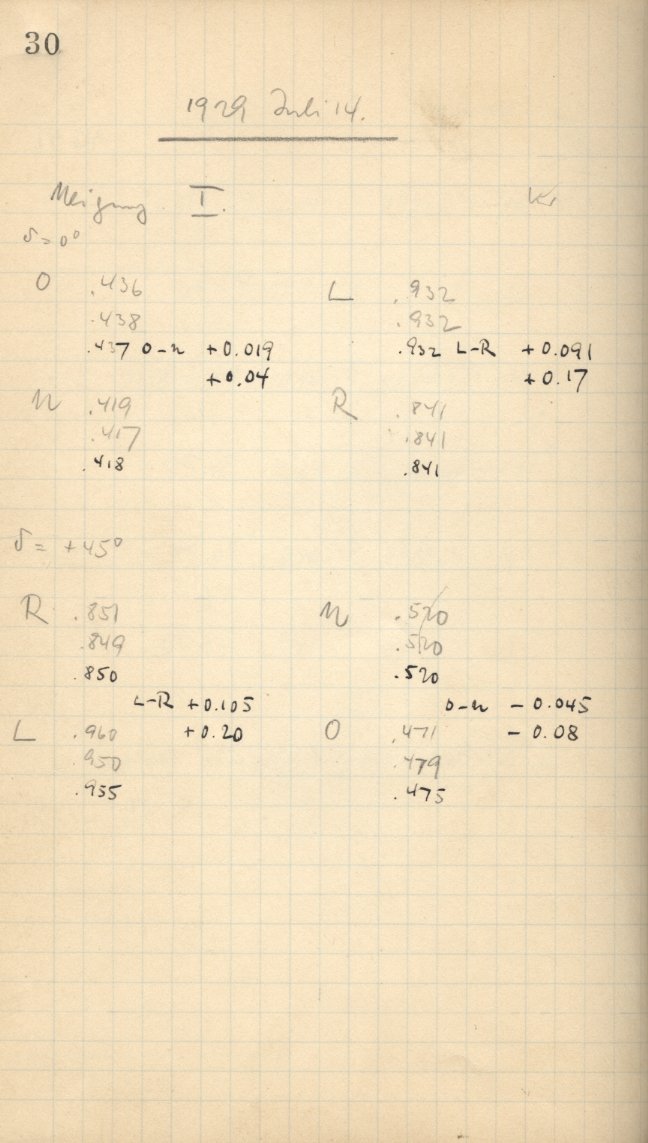 30
1929 Juli 14.
Neigung I.
δ = 0°
O .436
.438
.437 O-U +0.019
+0.04
U .419
.417
.418
L .932
.932
.932 L-R +0.091
+0.17
R .841
.841
.841
δ = +45°
R .851
.849
.850
L-R +0.105
+0.20
L .960
.950
.955
U .520
.520
.520
O-U -0.045
-0.08
O .471
.479
.475